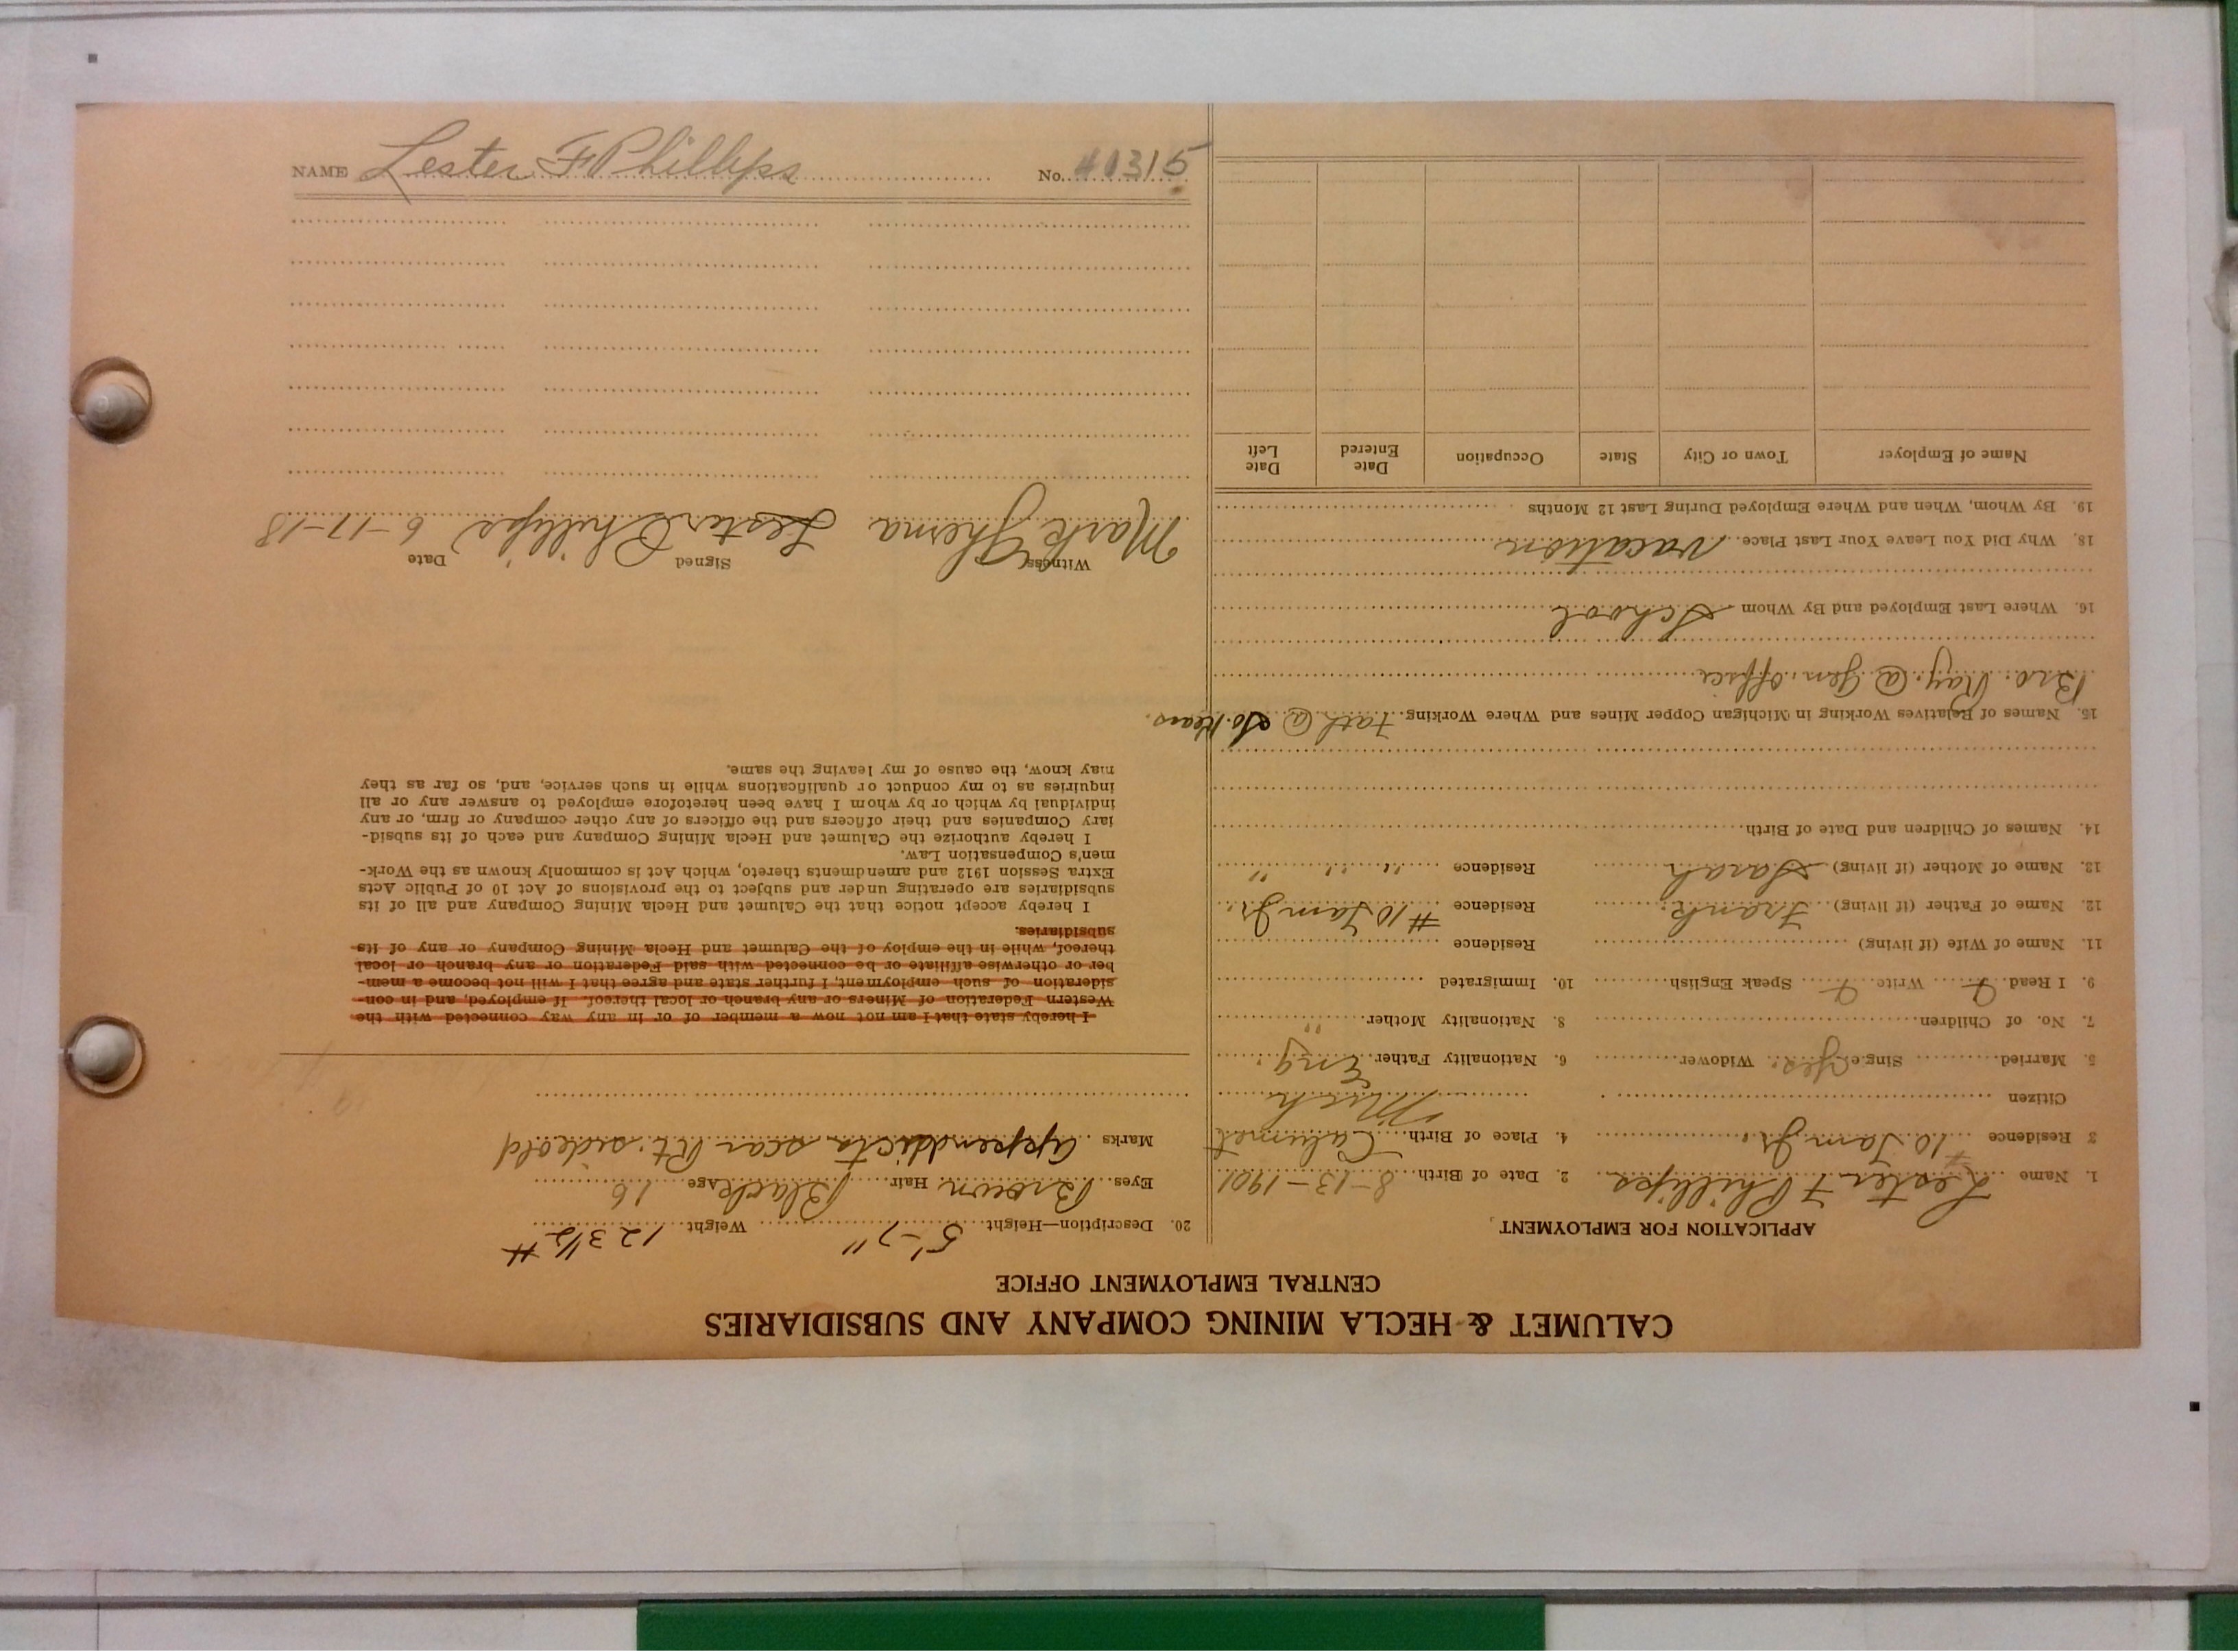 CALUMET & HECLA MINING COMPANY AND SUBSIDIARIES
CENTRAL EMPLOYMENT OFFICE
APPLICATION FOR EMPLOYMENT
1. Name Lester F Phillips 2. Date of Birth 8-13-1901
3 Residence 10 Tam Jr. 4. Place of Birth Calumet
Citizen Mich
5. Married Single yes. Widower 6. Nationality Father Eng.
7. No. of Children 8. Nationality Mother "
9. I Read Write Speak English 10. Immigrated
11. Name of Wife (if living) Residence
12. Name of Father (if living) Frank. Residence #10 Tam Jr.
13. Name of Mother (if living) Sarah Residence " " "
14. Names of Children and Date of Birth
15. Names of Relatives Working in Michigan Copper Mines and Where Working Fath @ So. Kears.
Bro. Ray. @ Gen. office
16. Where Last Employed and By Whom School
18. Why Did You Leave Your Last Place vacation
19. By Whom, When and Where Employed During Last 12 Months
Name of Employer Town or City State Occupation Date Entered Date Left
20. Description—Height 5'-7" Weight 123 1/2 #
Eyes Brown Hair Black Age 16
Marks appenddicts scar Rt. side old
I hereby state that I am not now a member of or in any way connected with the
Western Federation of Miners or any branch or local thereof. If employed, and in con-
sideration of such employment, I further state and agree that I will not become a mem-
ber or otherwise affiliate or be connected with said Federation or any branch or local
thereof, while in the employ of the Calumet and Hecla Mining Company or any of its
subsidiaries.
I hereby accept notice that the Calumet and Hecla Mining Company and all of its
subsidiaries are operating under and subject to the provisions of Act 10 of Public Acts
Extra Session 1912 and amendments thereto, which Act is commonly known as the Work-
men's Compensation Law.
I hereby authorize the Calumet and Hecla Mining Company and each of its subsid-
iary Companies and their officers and the officers of any other company or firm, or any
individual by which or by whom I have been heretofore employed to answer any or all
inquiries as to my conduct or qualifications while in such service, and, so far as they
may know, the cause of my leaving the same.
Witness Signed Date
Mark Lester Phillips 6-17-18
NAME Lester F Phillips No. 40315